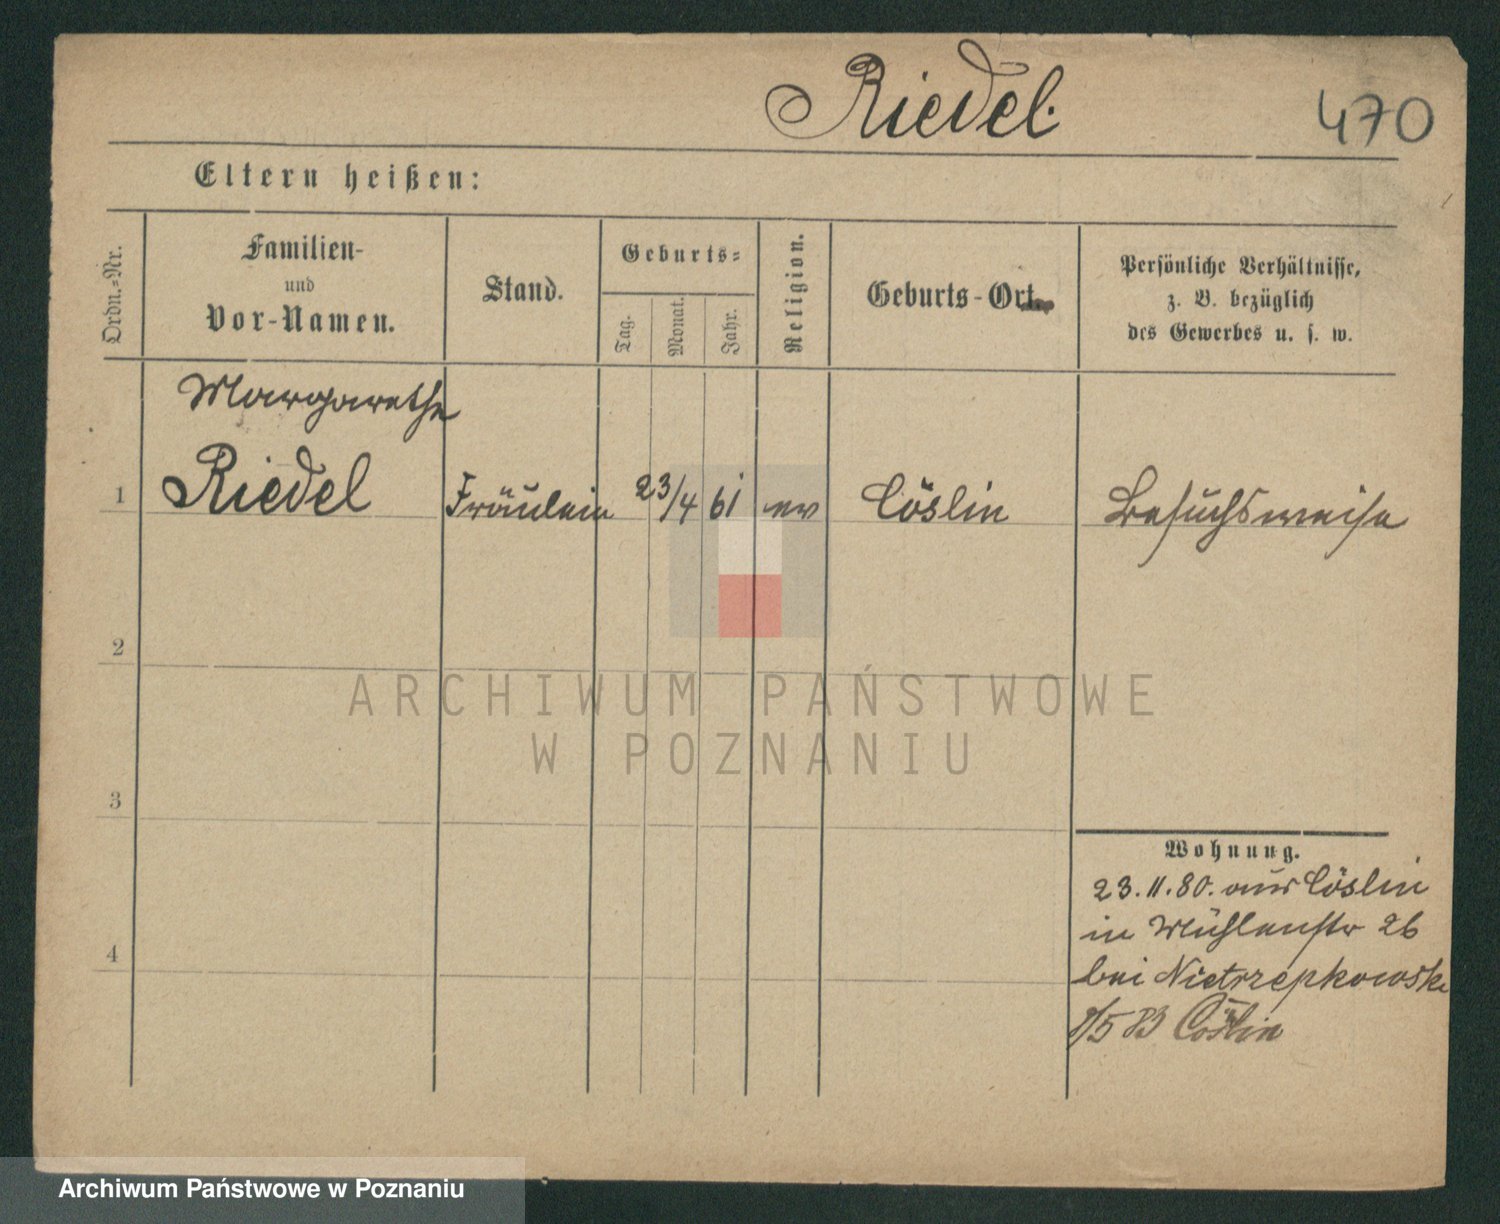 Riedel.
470
Eltern heißen:
Ordn.=Nr.
Familien-
und
Vor-Namen.
Stand.
Geburts=
Tag.
Monat.
Jahr.
Religion.
Geburts-Ort.
Persönliche Verhältnisse,
z. B. bezüglich
des Gewerbes u. s. w.
Margarethe
1 Riedel Fräulein 23/4 61 ev Cöslin Besuchsweise
2
3
4
Wohnung.
23.11.80. aus Cöslin
in Mühlenstr 26
bei Nietrzepkowske
8/5 83 Cöslin
ARCHIWUM PAŃSTWOWE
W POZNANIU
Archiwum Państwowe w Poznaniu